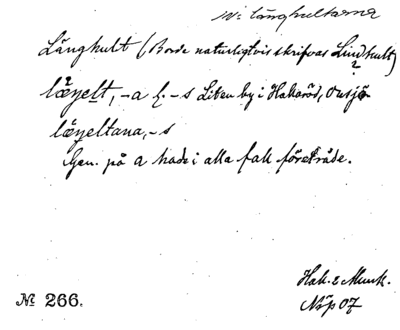 Långhultarna
Långhult (Borde naturligtvis skrifvas Lindhult)
?
lœ̊ŋelt, -a l. -s Liten by i Hakaröd, Onsjö
lœ̊ŋeltana, -s
Gen. på a hade i alla fall företräde.
Hak. 2 Munk.
Nöp 07
No 266.